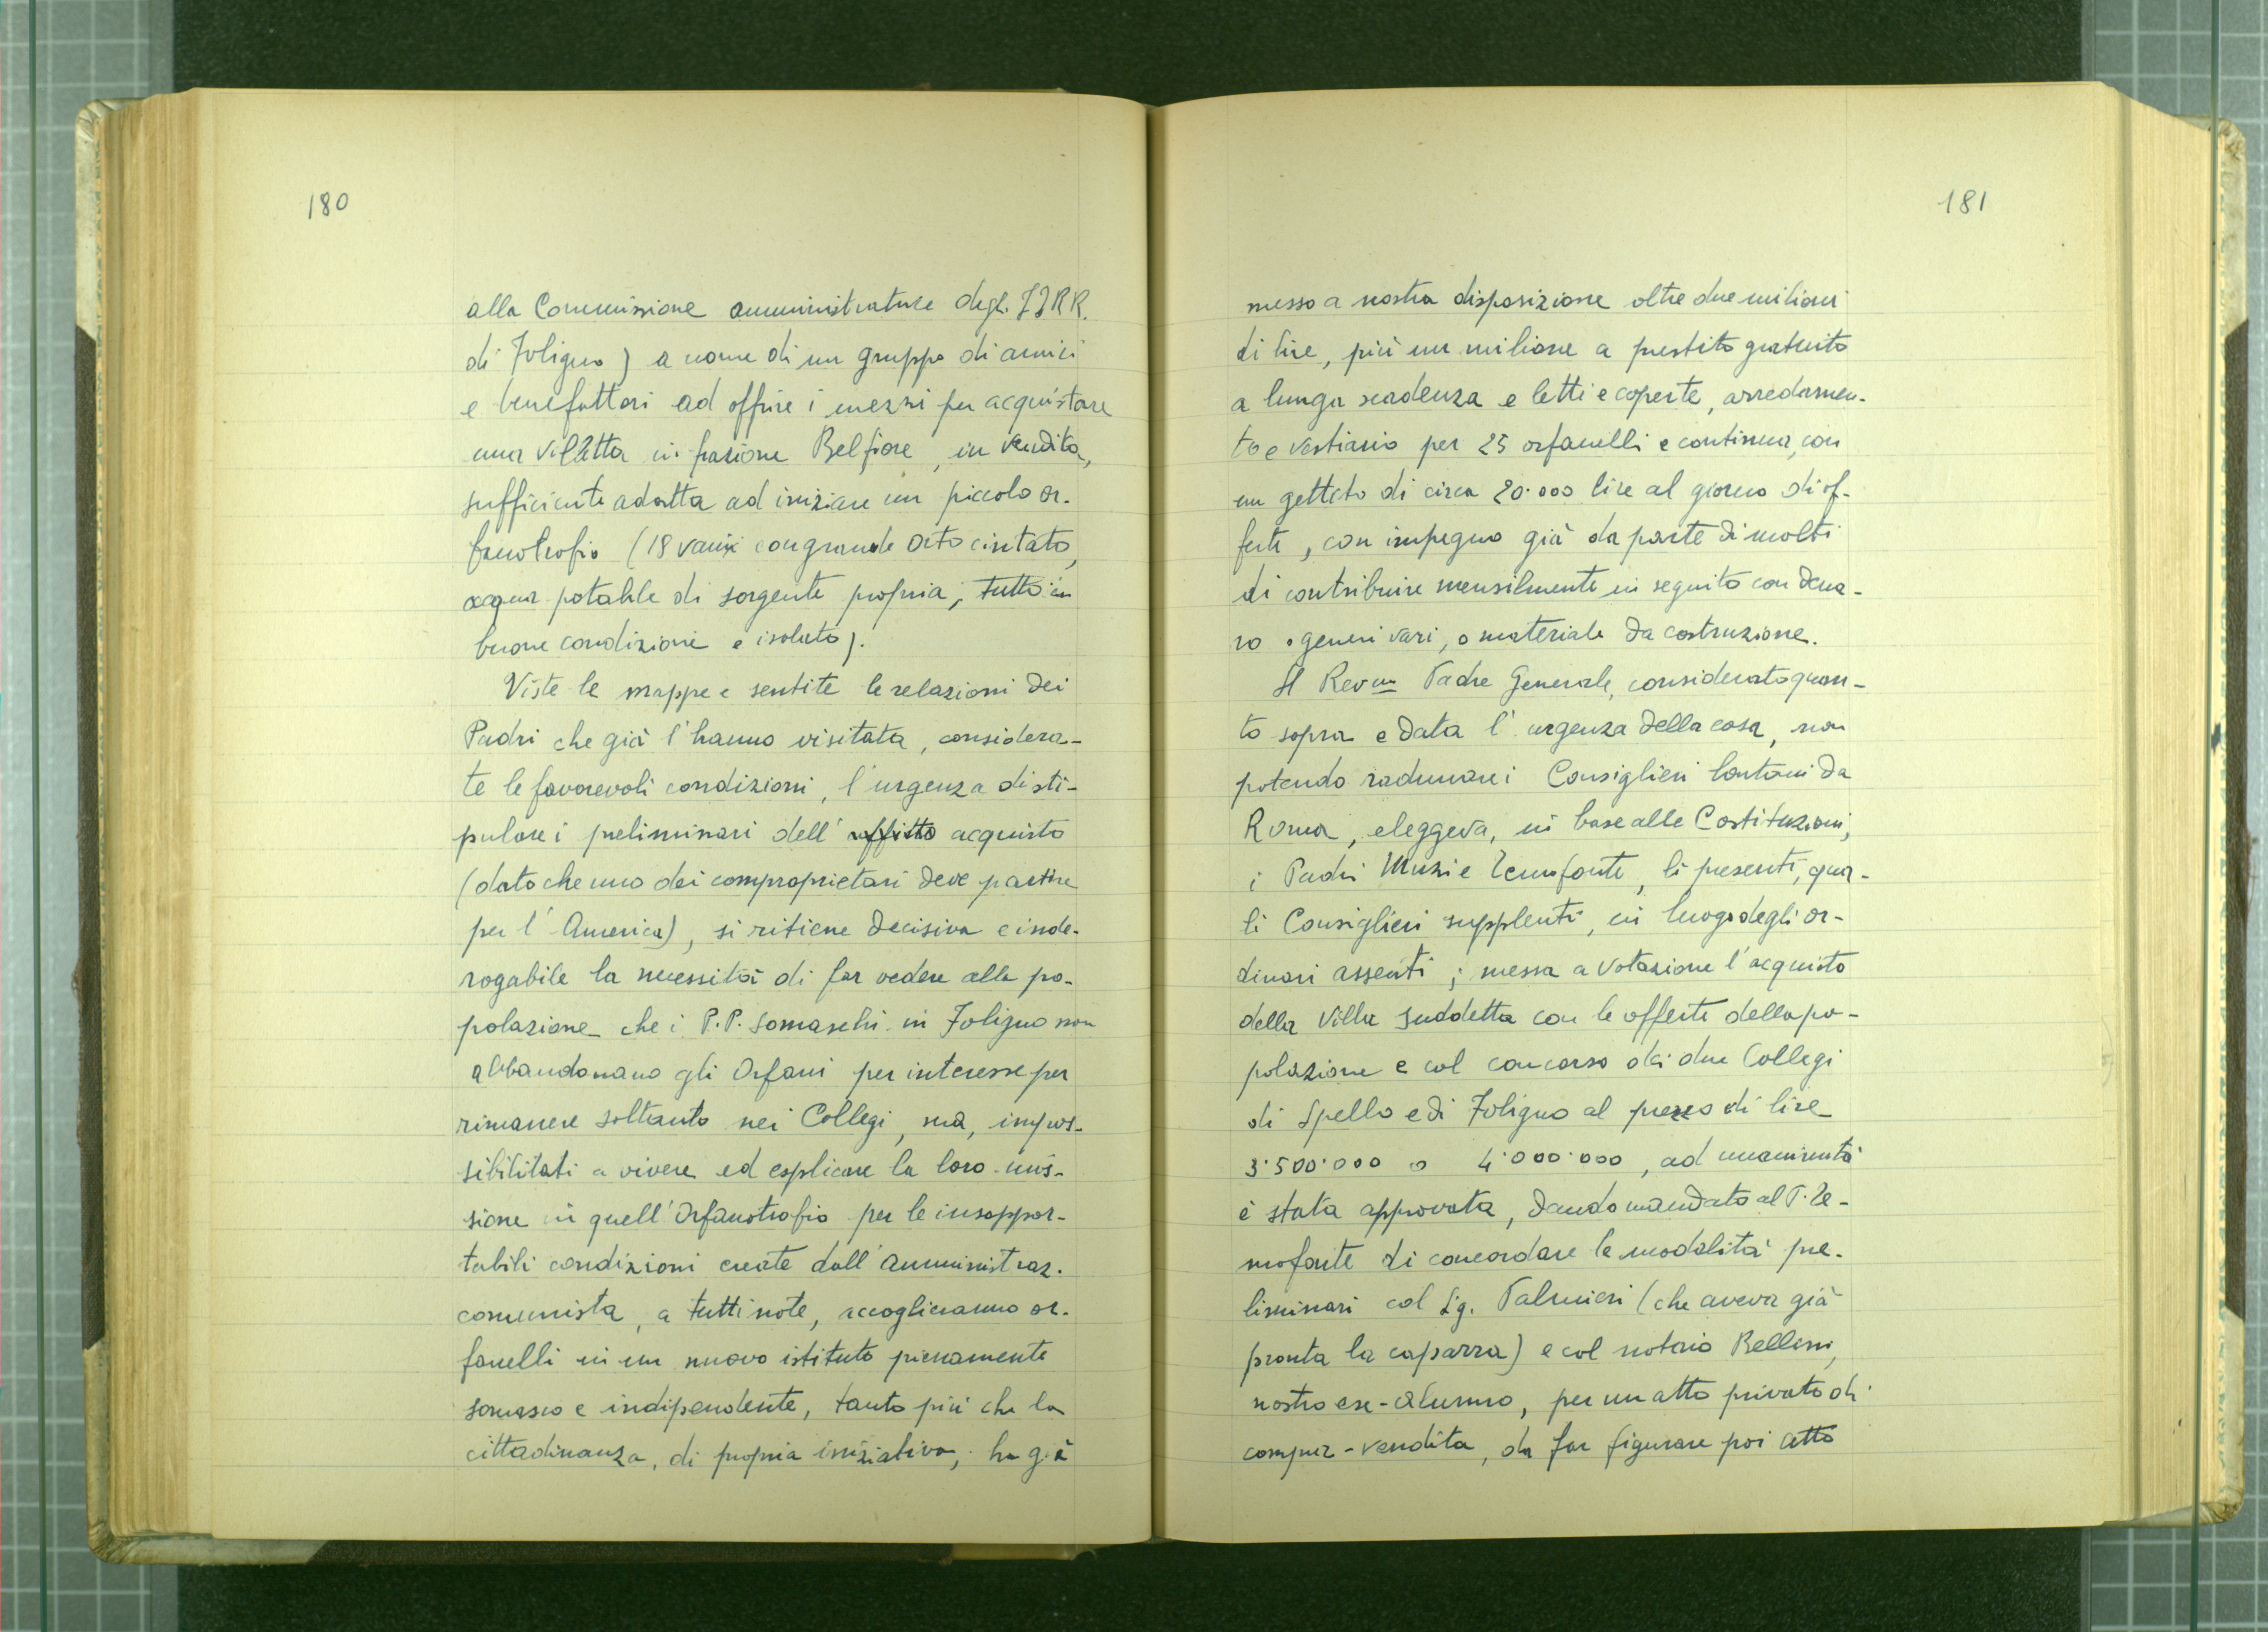 180
alla Commissione amministratrice degl. IIRR.
di Foligno) a nome di un gruppo di amici
e benefattori ad offrire i mezzi per acquistare
una villetta in frazione Belfiore, in vendita,
sufficiente adatta ad iniziare un piccolo or-
fanotrofio (18 vani con grande orto cintato,
acqua potabile di sorgente propria; tutto in
buone condizioni e isolato).
Viste le mappe e sentite le relazioni dei
Padri che già l'hanno visitata, considera-
te le favorevoli condizioni, l'urgenza di sti-
pulare i preliminari dell' affitto acquisto
(dato che uno dei comproprietari deve partire
per l'America), si ritiene decisiva e inde-
rogabile la necessità di far vedere alla po-
polazione che i P.P. Somaschi in Foligno non
abbandonano gli Orfani per interesse per
rimanere soltanto nei Collegi, ma, impos-
sibilitati a vivere ed esplicare la loro mis-
sione in quell'Orfanotrofio per le insoppor-
tabili condizioni create dall'Amministraz.
comunista, a tutti note, accoglieranno or-
fanelli in un nuovo istituto pienamente
somasco e indipendente, tanto più che la
cittadinanza, di propria iniziativa, ha già
181
messo a nostra disposizione oltre due milioni
di lire, più un milione a prestito gratuito
a lunga scadenza e letti e coperte, arredamen-
to e vestiario per 25 orfanelli e continua, con
un gettito di circa 20.000 lire al giorno di of-
ferte, con impegno già da parte di molti
di contribuire mensilmente in seguito con dena-
ro o generi vari, o materiale da costruzione.
Il Rev.mo Padre Generale, considerato quan-
to sopra e data l'urgenza della cosa, non
potendo radunare i Consiglieri lontani da
Roma, eleggeva, in base alle Costituzioni,
i Padri Muzi e Venofonte, lì presenti, qua-
li Consiglieri supplenti, in luogo degli or-
dinari assenti; messa a votazione l'acquisto
della Villa suddetta con le offerte della po-
polazione e col concorso dei due Collegi
di Spello e di Foligno al prezzo di lire
3.500.000 o 4.000.000, ad unanimità
è stata approvata, dando mandato al P. Ve-
nofonte di concordare le modalità pre-
liminari col Sig. Palmieri (che aveva già
pronta la caparra) e col notaio Bellini,
nostro ex-alunno, per un atto privato di
compra-vendita, da far figurare poi atto